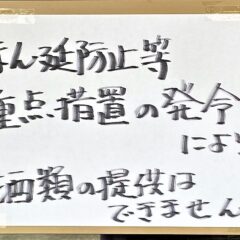 まん延防止等
重点措置の発令
により
酒類の提供は
できません